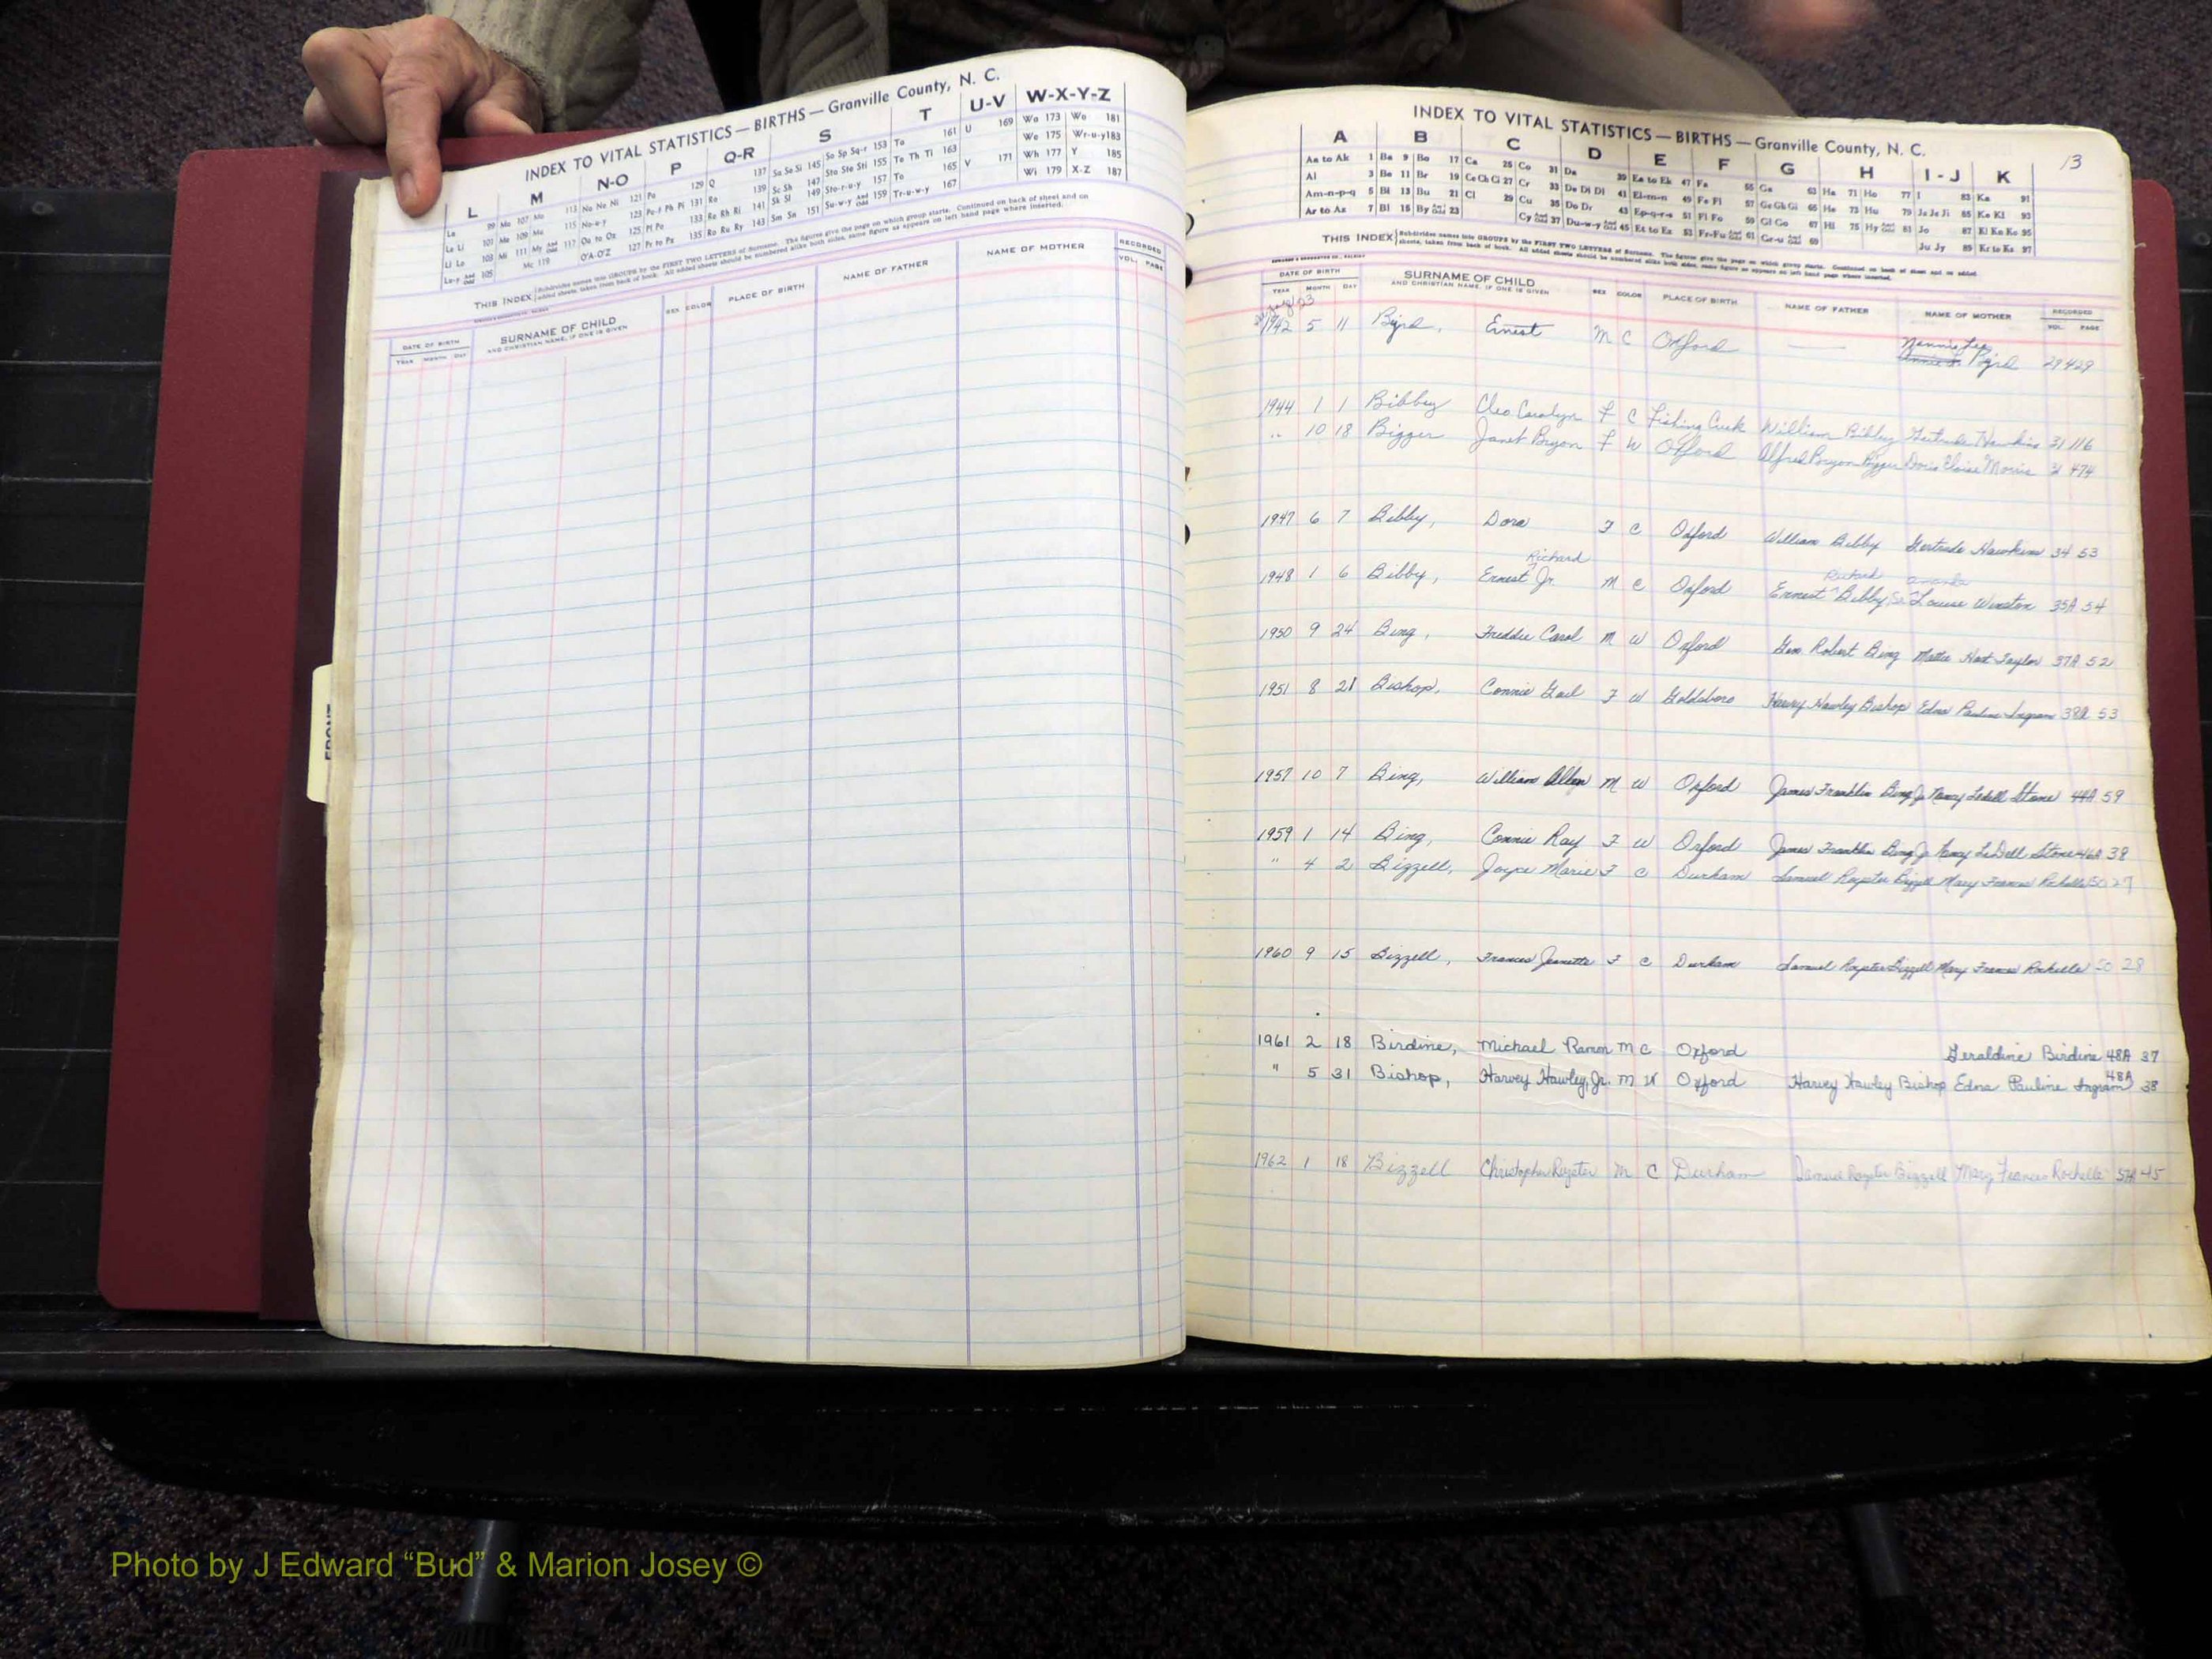 INDEX TO VITAL STATISTICS — BIRTHS — Granville County, N. C.
L M N-O P Q-R S T U-V W-X-Y-Z
La 99 Ma 107 Mo 113 Na Ne Ni 121 Pa 129 Q 137 Sa Se Si 145 So Sp Sq-r 153 Ta 161 U 169 Wa 173 Wo 181
Le Li 101 Me 109 Mu 115 No-u-y 123 Pe-f Ph Pi 131 Ra 139 Sc Sh 147 Sta Ste Sti 155 Te Th Ti 163 We 175 Wr-u-y 183
Ll Lo 103 Mi 111 My And Odd 117 Oa to Oz 125 Pl Po 133 Re Rh Ri 141 Sk Sl 149 Sto-r-u-y 157 To 165 V 171 Wh 177 Y 185
Lu-y And Odd 105 Mc 119 O'A-O'Z 127 Pr to Pz 135 Ro Ru Ry 143 Sm Sn 151 Su-w-y And Odd 159 Tr-u-w-y 167 Wi 179 X-Z 187
THIS INDEX Subdivides names into GROUPS by the FIRST TWO LETTERS of Surname. The figures give the page on which group starts. Continued on back of sheet and on
added sheets, taken from back of book. All added sheets should be numbered alike both sides, same figure as appears on left hand page where inserted.
DATE OF BIRTH SURNAME OF CHILD SEX COLOR PLACE OF BIRTH NAME OF FATHER NAME OF MOTHER RECORDED
YEAR MONTH DAY AND CHRISTIAN NAME, IF ONE IS GIVEN VOL. PAGE
FRONT
INDEX TO VITAL STATISTICS — BIRTHS — Granville County, N. C.
13
A B C D E F G H I - J K
Aa to Ak 1 Ba 9 Bo 17 Ca 25 Co 31 Da 39 Ea to Ek 47 Fa 55 Ga 63 Ha 71 Ho 77 I 83 Ka 91
Al 3 Be 11 Br 19 Ce Ch Ci 27 Cr 33 De Di Dl 41 El-m-n 49 Fe Fi 57 Ge Gh Gi 65 He 73 Hu 79 Ja Je Ji 85 Ke Kl 93
Am-n-p-q 5 Bi 13 Bu 21 Cl 29 Cu 35 Do Dr 43 Ep-q-r-s 51 Fl Fo 59 Gl Go 67 Hi 75 Hy And Odd 81 Jo 87 Kl Kn Ko 95
Ar to Az 7 Bl 15 By And Odd 23 Cy And Odd 37 Du-w-y And Odd 45 Et to Ez 53 Fr-Fu And Odd 61 Gr-u And Odd 69 Ju Jy 89 Kr to Kz 97
THIS INDEX Subdivides names into GROUPS by the FIRST TWO LETTERS of Surname. The figures give the page on which group starts. Continued on back of sheet and on added
sheets, taken from back of book. All added sheets should be numbered alike both sides, same figure as appears on left hand page where inserted.
DATE OF BIRTH SURNAME OF CHILD SEX COLOR PLACE OF BIRTH NAME OF FATHER NAME OF MOTHER RECORDED
YEAR MONTH DAY AND CHRISTIAN NAME, IF ONE IS GIVEN VOL. PAGE
Nannie Lee
1942 5 11 Byrd, Ernest M C Oxford — Byrd 29 429
1944 1 1 Bibbey Cleo Carolyn F C Fishing Creek William Bibbey Gertrude Hawkins 31 116
" 10 18 Bigger Janet Bryon F W Oxford Alfred Bryon Bigger Doris Eloise Morris 31 474
1947 6 7 Bibby, Dora F C Oxford William Bibby Gertrude Hawkins 34 53
Richard Richard Amanda
1948 1 6 Bibby, Ernest Jr. M C Oxford Ernest Bibby Sr. Louise Winston 35A 54
1950 9 24 Bing, Freddie Carol M W Oxford Geo. Robert Bing Mattie Hart Taylor 37A 52
1951 8 21 Bishop, Connie Gail F W Goldsboro Harvey Hawley Bishop Edna Pauline Ingram 38A 53
1957 10 7 Bing, William Allen M W Oxford James Franklin Bing Jr Nancy Ledell Stone 44A 59
1959 1 14 Bing, Connie Ray F W Oxford James Franklin Bing Jr Nancy LeDell Stone 46A 38
" 4 2 Bizzell, Joyce Marie F C Durham Samuel Royster Bizzell Mary Frances Rochelle 50 27
1960 9 15 Bizzell, Frances Jeanette F C Durham Samuel Royster Bizzell Mary Frances Rochelle 50 28
1961 2 18 Birdine, Michael Ramon M C Oxford Geraldine Birdine 48A 37
" 5 31 Bishop, Harvey Hawley, Jr. M W Oxford Harvey Hawley Bishop Edna Pauline Ingram 48A 38
1962 1 18 Bizzell Christopher Royster M C Durham Samuel Royster Bizzell Mary Frances Rochelle 45
Photo by J Edward “Bud” & Marion Josey ©